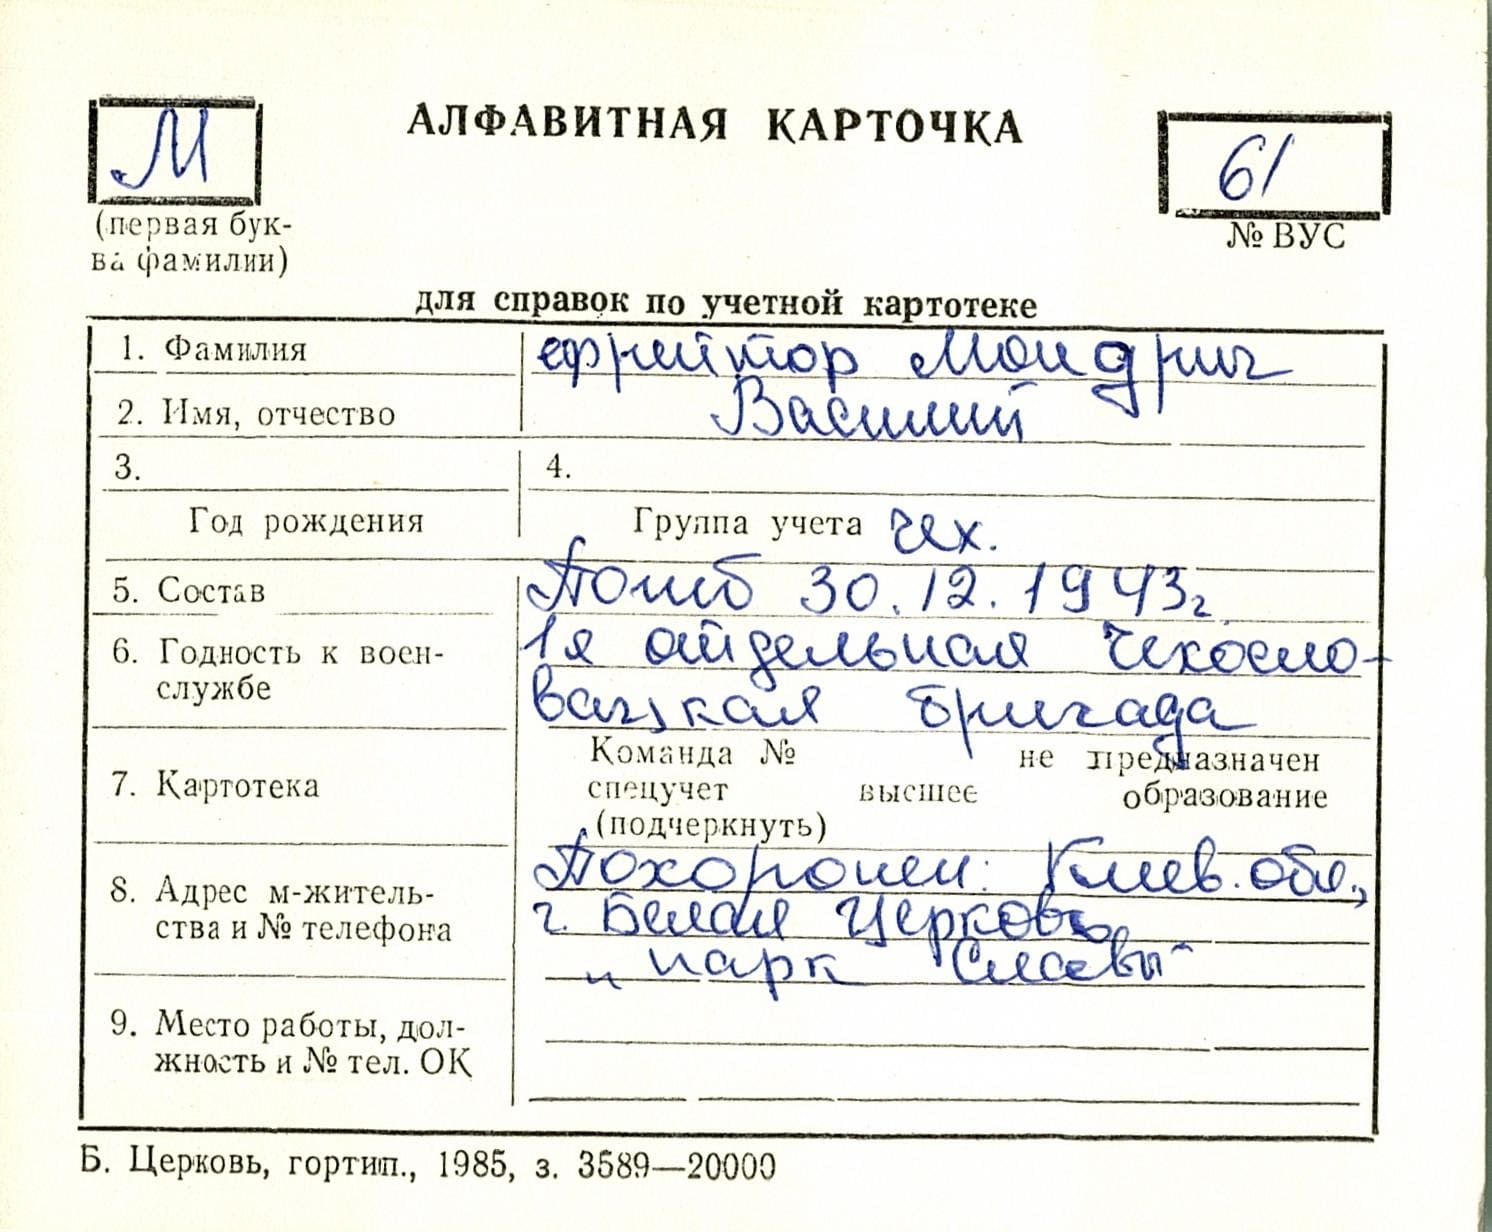 М
АЛФАВИТНАЯ КАРТОЧКА
61
(первая бук-
ва фамилии)
№ ВУС
для справок по учетной картотеке
1. Фамилия
ефрейтор Мондрич
2. Имя, отчество
Василий
3.
4.
Год рождения
Группа учета чех.
5. Состав
Погиб 30.12.1943г.
6. Годность к воен-
службе
1я отдельная Чехосло-
вацкая бригада
7. Картотека
Команда № не предназначен
спецучет высшее образование
(подчеркнуть)
8. Адрес м-житель-
ства и № телефона
Похоронен: Киев. обл.,
г. Белая Церковь,
„парк Славы“
9. Место работы, дол-
жность и № тел. ОК
Б. Церковь, гортип., 1985, з. 3589—20000